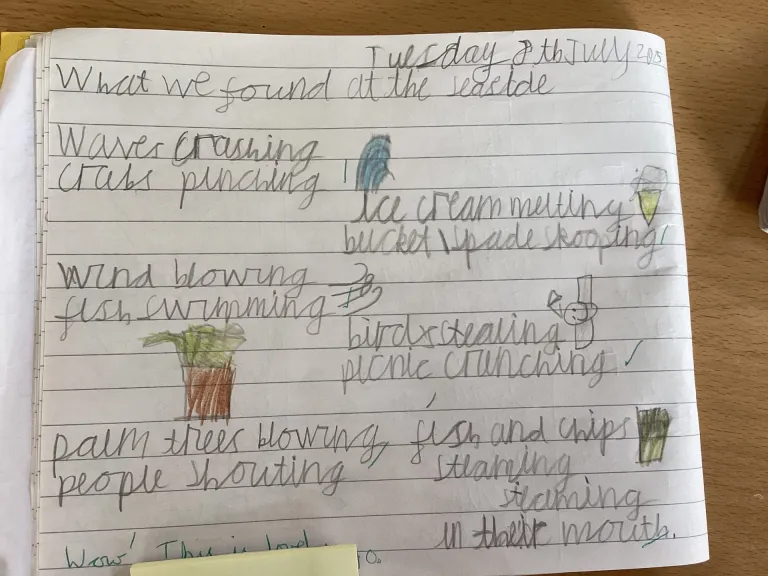 Tuesday 8th July 2025
What we found at the seaside
Waves crashing
crabs pinching
ice cream melting
bucket \ spade skooping
wind blowing
fish swimming
birds stealing
picnic crunching
palm trees blowing
people shouting
fish and chips
steaming
steaming
in their mouth.
Wow! This is